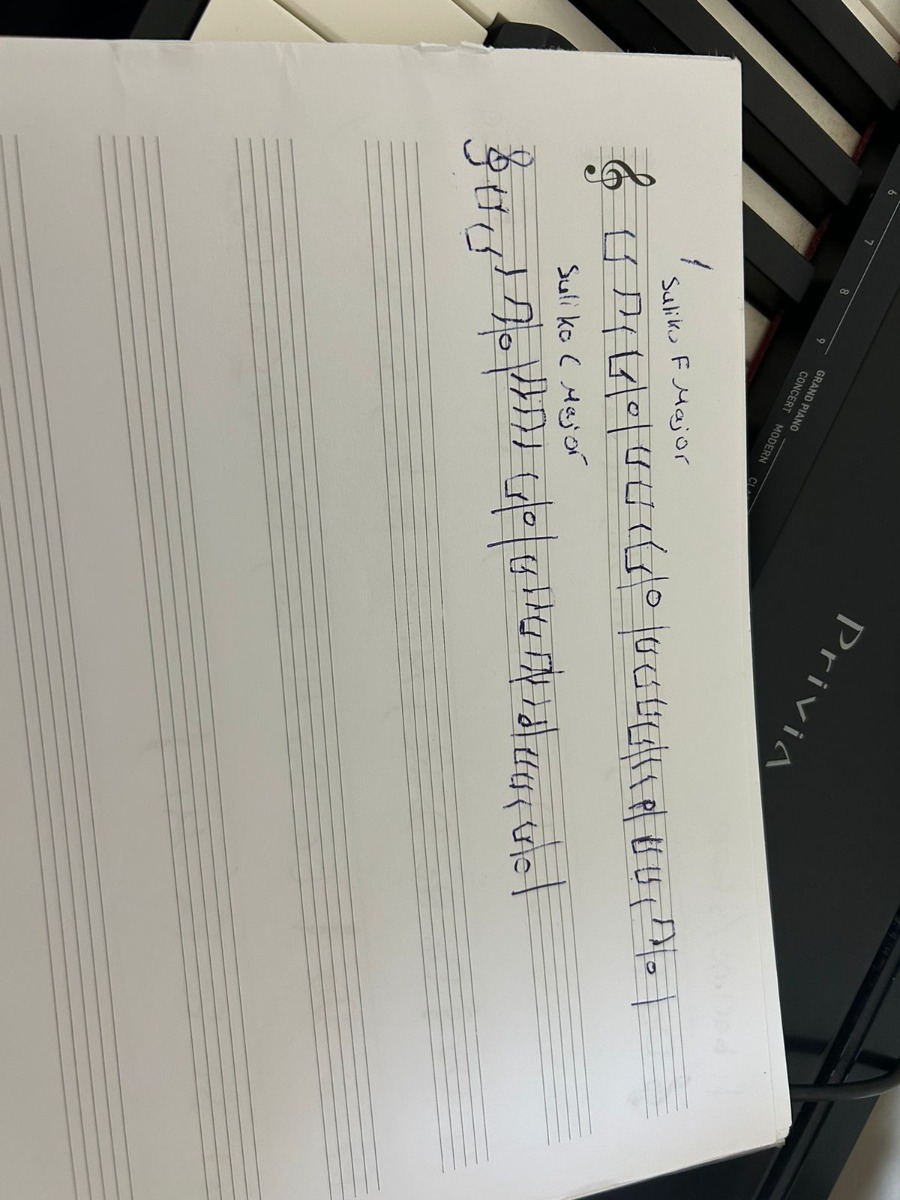 1
Suliko F Major
Suliko C Major
Privia
GRAND PIANO
CONCERT MODERN
6 7 8 9